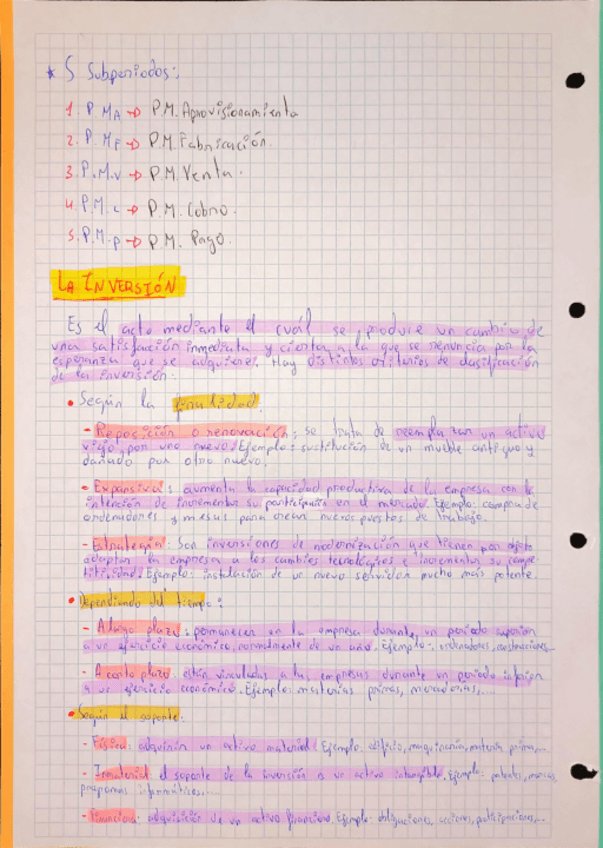 * 5 Subperiodos:
1. P.MA → P.M. Aprovisionamiento
2. P.MF → P.M. Fabricación.
3. P.M.V → P.M. Venta.
4. P.M.C → P.M. Cobro.
5. P.M.P → P.M. Pago.
LA INVERSIÓN
Es el acto mediante el cuál se produce un cambio de
una satisfacción inmediata y cierta a la que se renuncia por la
esperanza que se adquiere. Hay distintos criterios de clasificación
de la inversión:
• Según la finalidad.
- Reposición o renovación: se trata de reemplazar un activo
viejo por uno nuevo. Ejemplo: sustitución de un mueble antiguo y
dañado por otro nuevo.
- Expansiva: aumenta la capacidad productiva de la empresa con la
intención de incrementar su participación en el mercado. Ejemplo: compra de
ordenadores y mesas para crear nuevos puestos de trabajo.
- Estrategia: Son inversiones de modernización que tienen por objeto
adaptar la empresa a los cambios tecnológicos e incrementar su compe-
titividad. Ejemplo: instalación de un nuevo servidor mucho más potente.
• Dependiendo del tiempo:
- A largo plazo: permanecen en la empresa durante un período superior
a un ejercicio económico, normalmente de un año. Ejemplo: ordenadores, construcciones...
- A corto plazo: están vinculadas a la empresas durante un período inferior
a un ejercicio económico. Ejemplo: materias primas, mercaderías,...
• Según el soporte:
- Física: adquirir un activo material. Ejemplo: edificio, maquinaria, materia prima,...
- Inmaterial: el soporte de la inversión es un activo intangible. Ejemplo: patentes, marcas,
programas informáticos,...
- Financiera: adquisición de un activo financiero. Ejemplo: obligaciones, acciones, participaciones,...